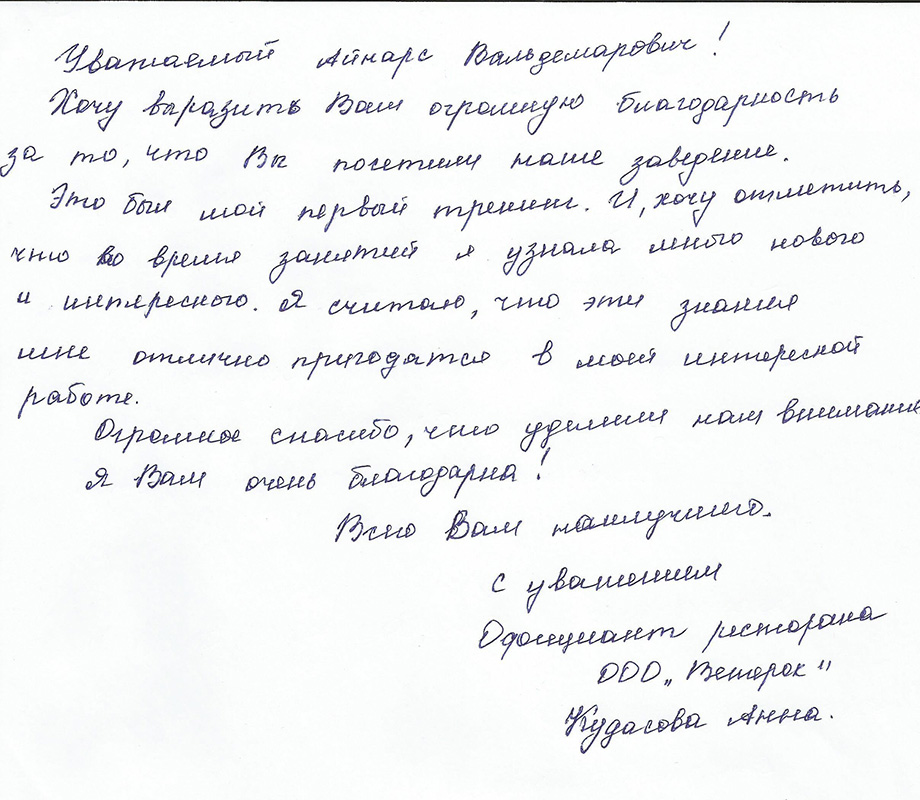 Уважаемый Айнарс Вальдемарович!
Хочу выразить Вам огромную благодарность
за то, что Вы посетили наше заведение.
Это был мой первый тренинг. И, хочу отметить,
что во время занятий я узнала много нового
и интересного. Я считаю, что эти знания
мне отлично пригодятся в моей интересной
работе.
Огромное спасибо, что уделили нам внимание
Я Вам очень благодарна!
Всего Вам наилучшего.
С уважением
Официант ресторана
ООО „Ветерок"
Кудасова Анна.